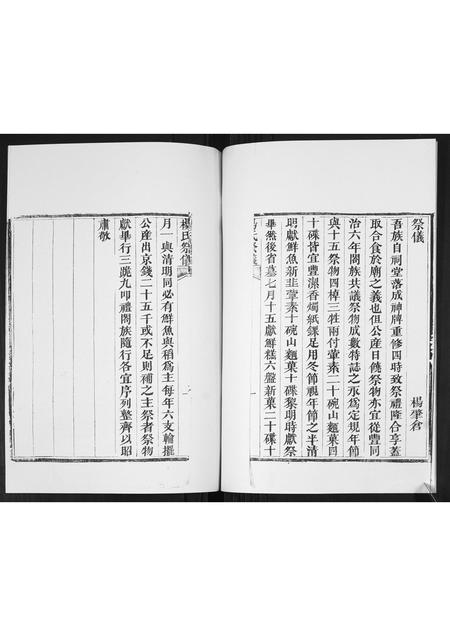 祭儀
楊肇倉
吾族自祠堂落成神牌重修四時致祭禮隆合享蓋
取合食於廟之義也但公產日饒祭物亦宜從豐同
治六年闔族共議祭物成數特誌之永為定規年節
與十五祭物四棹三牲兩付葷素二十碗山麵菓四
十碟皆宜豐潔香燭紙錁足用冬節視年節之半清
明獻鮮魚新韭葷素十碗山麵菓十碟黎明時獻祭
畢然後省墓七月十五獻鮮糕六盤新菓二十碟十
楊氏祭儀
一
月一與清明同必有鮮魚與稻為主每年六支輪擺
公產出京錢二十五千或不足則補之主祭者祭物
獻畢行三跪九叩禮闔族隨行各宜序列整齊以昭
肅敬